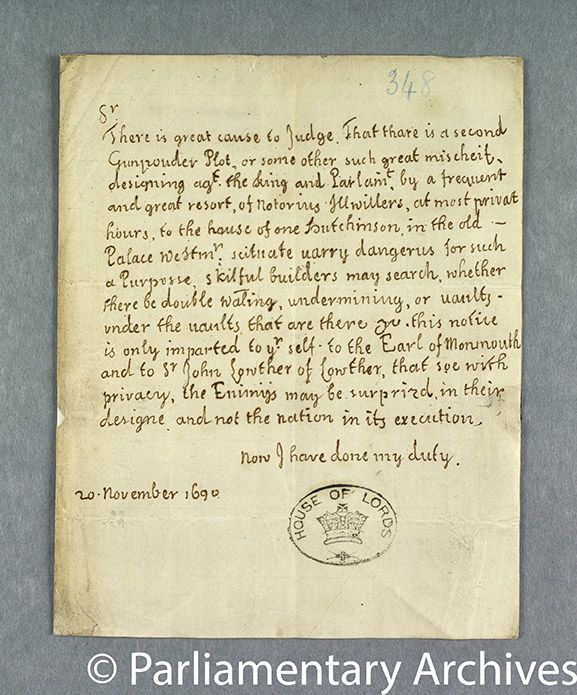 348
Sr.
There is great cause to Judge. That thare is a second
Gunpouder Plot, or some other such great mischeif,
designing agt. the king and Parlamt. by a frequent
and great resort, of notorius Illwillers, at most privat
hours, to the house of one Hutchinson, in the old –
Palace Westmr. scituate varry dangerus for such
a Purposse, skilful builders may search, whether
there be double waling, undermining, or vaults –
under the vaults that are there this notice
is only imparted to yr self. to the Earl of Monmouth
and to Sr John Lowther of Lowther, that soe with
privacy, the Enimys may be surprizd in their
designe, and not the nation in its execution,
Now I have done my duty.
20. November 1690
HOUSE OF LORDS
© Parliamentary Archives